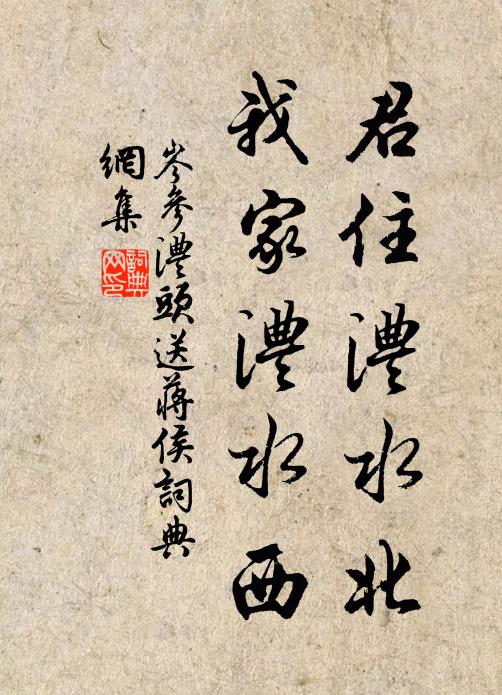 君住澧水北
我家澧水西
岑參澧頭送蔣侯詞典
網集
詞典
网印